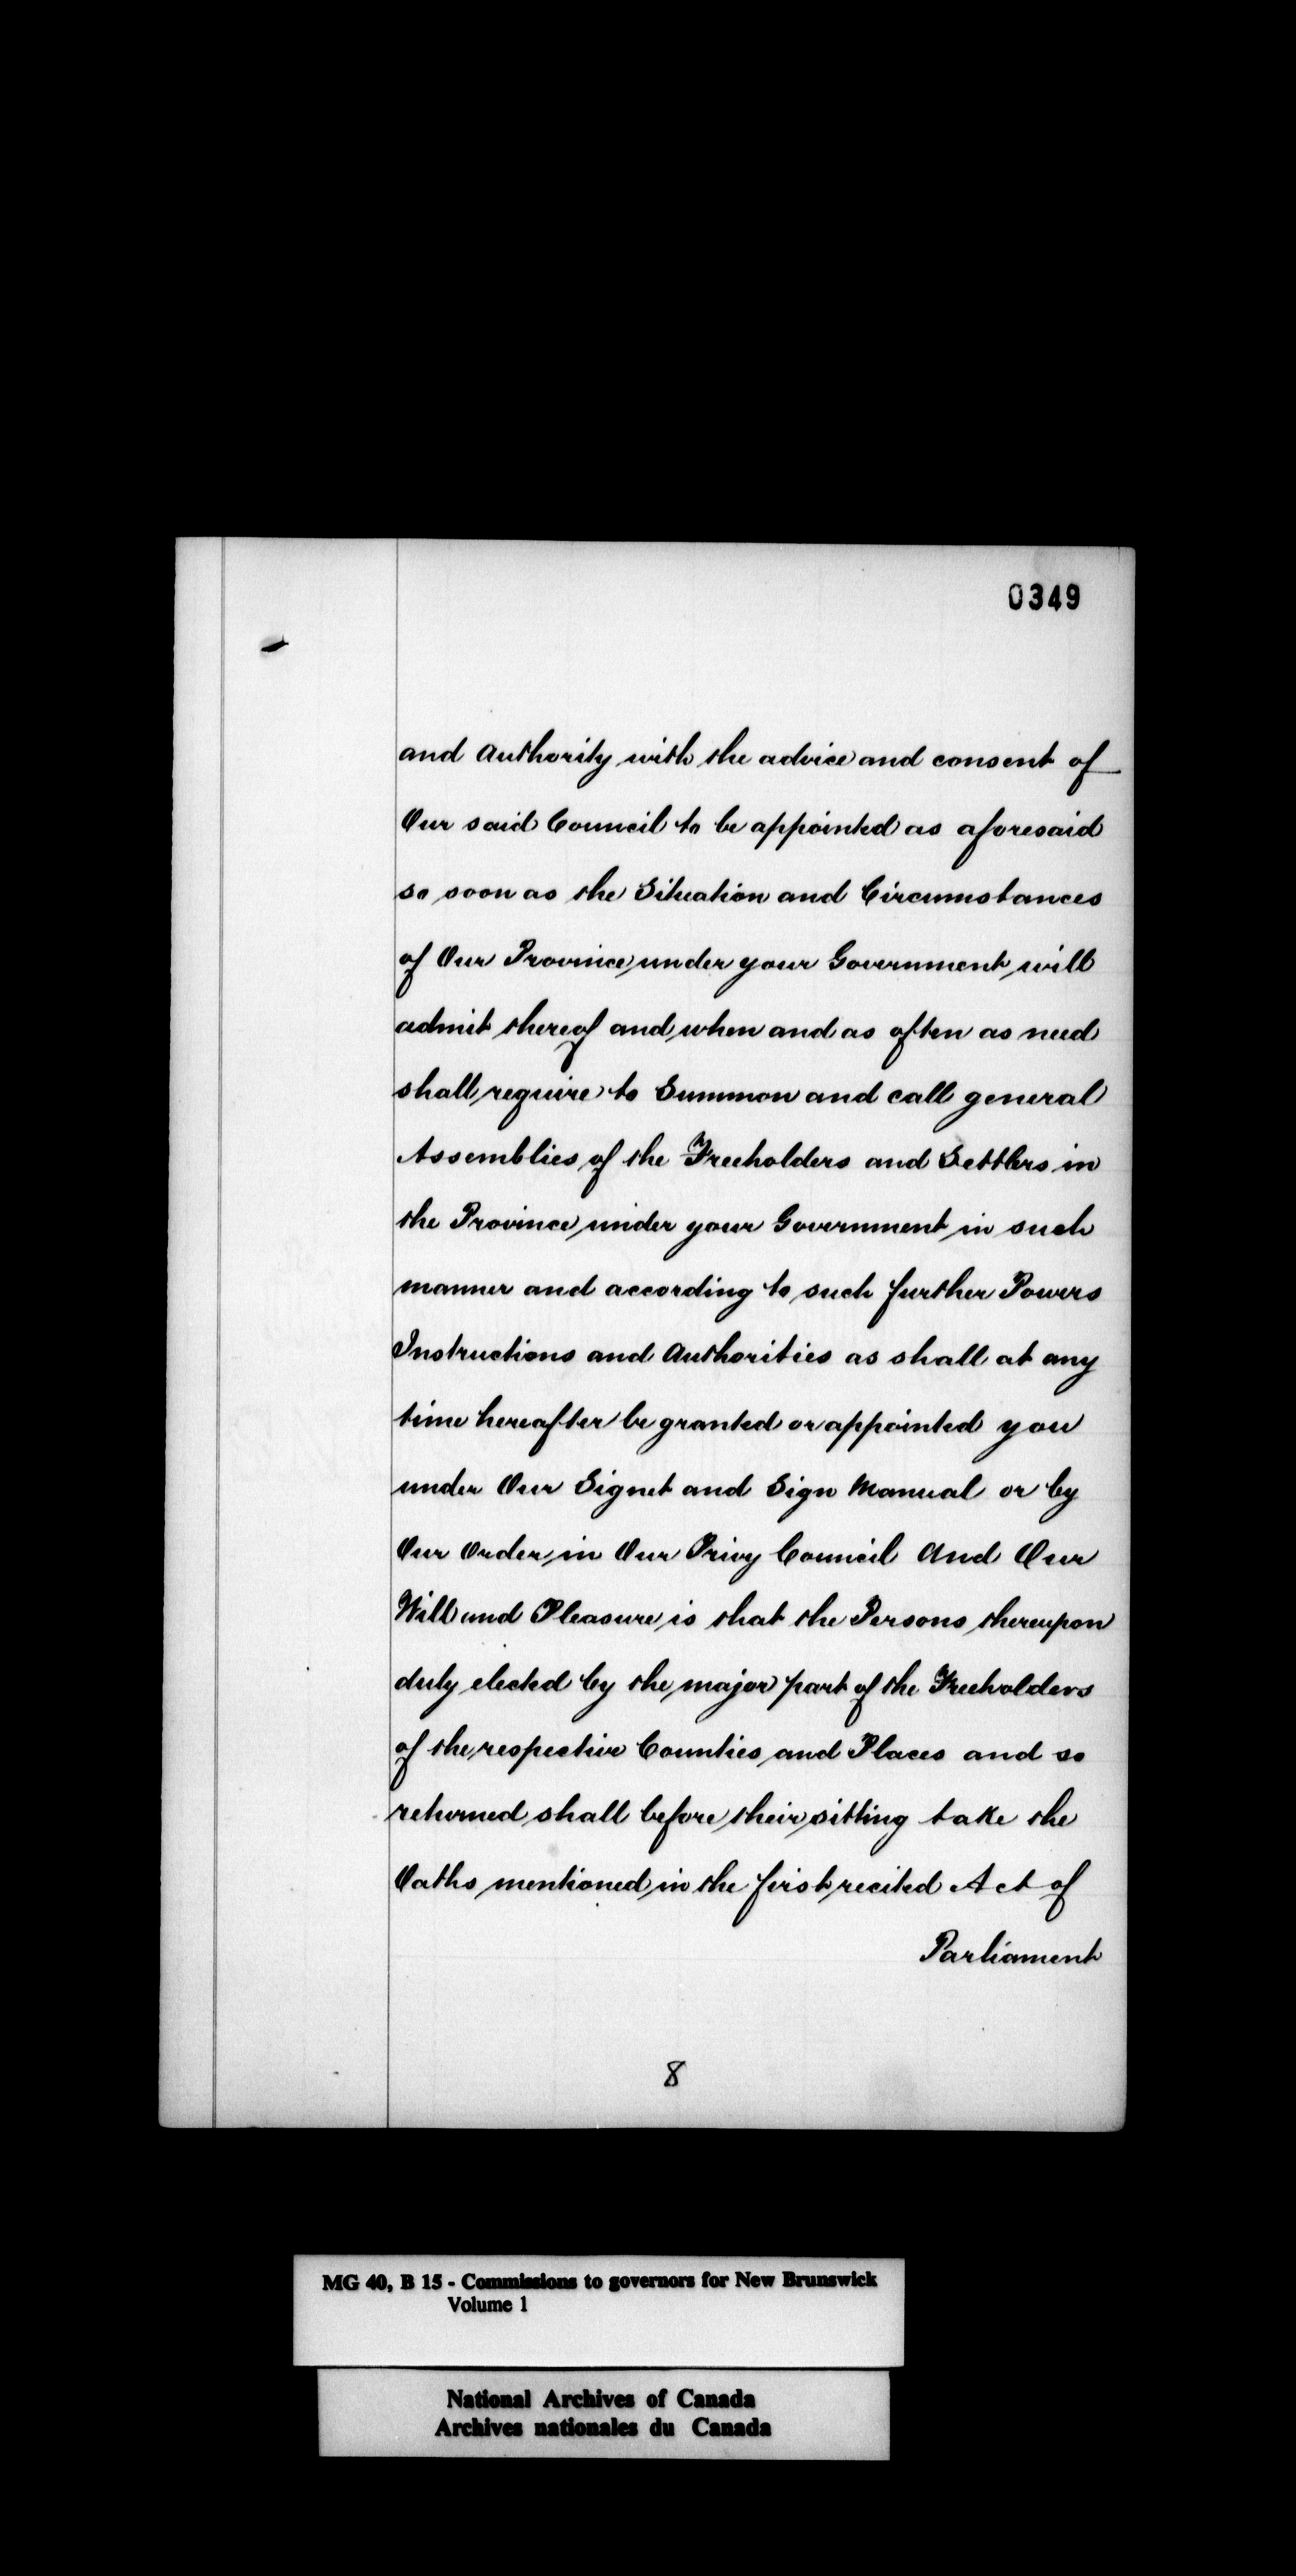 0349
and Authority with the advice and consent of
Our said Council to be appointed as aforesaid
so soon as the Situation and Circumstances
of Our Province under your Government will
admit thereof and when and as often as need
shall require to Summon and call general
Assemblies of the Freeholders and Settlers in
the Province under your Government in such
manner and according to such further Powers
Instructions and Authorities as shall at any
time hereafter be granted or appointed you
under Our Signet and Sign Manual or by
Our Order in Our Privy Council And Our
Will and Pleasure is that the Persons thereupon
duly elected by the major part of the Freeholders
of the respective Counties and Places and so
returned shall before their sitting take the
Oaths mentioned in the first recited Act of
Parliament
8
MG 40, B 15 - Commissions to governors for New Brunswick
Volume 1
National Archives of Canada
Archives nationales du Canada